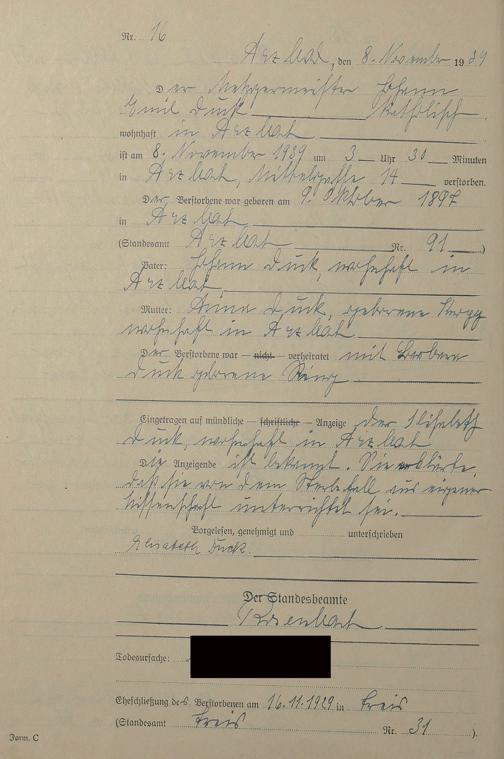 Nr. 16
Arzbach, den 8. November 1939
Der Metzgermeister Johann
Emil Duck katholisch
wohnhaft in Arzbach
ist am 8. November 1939 um 3 Uhr 30 Minuten
in Arzbach, Mittelgasse 14 verstorben.
Der Verstorbene war geboren am 9. Oktober 1897
in Arzbach
(Standesamt Arzbach Nr. 91)
Vater: Johann Duck, wohnhaft in
Arzbach
Mutter: Anna Duck, geborene
wohnhaft in Arzbach
Der Verstorbene war — nicht — verheiratet mit Barbara
Duck geborene
Eingetragen auf mündliche — schriftliche — Anzeige der Elisabeth
Duck, wohnhaft in Arzbach
Die Anzeigende ist bekannt. Sie erklärte,
daß sie von dem Sterbefall aus eigener
Wissenschaft unterrichtet sei.
Vorgelesen, genehmigt und unterschrieben
Elisabeth Duck.
Der Standesbeamte
Todesursache:
Eheschließung des Verstorbenen am 16.11.1929 in
(Standesamt Nr. 31).
Form. C